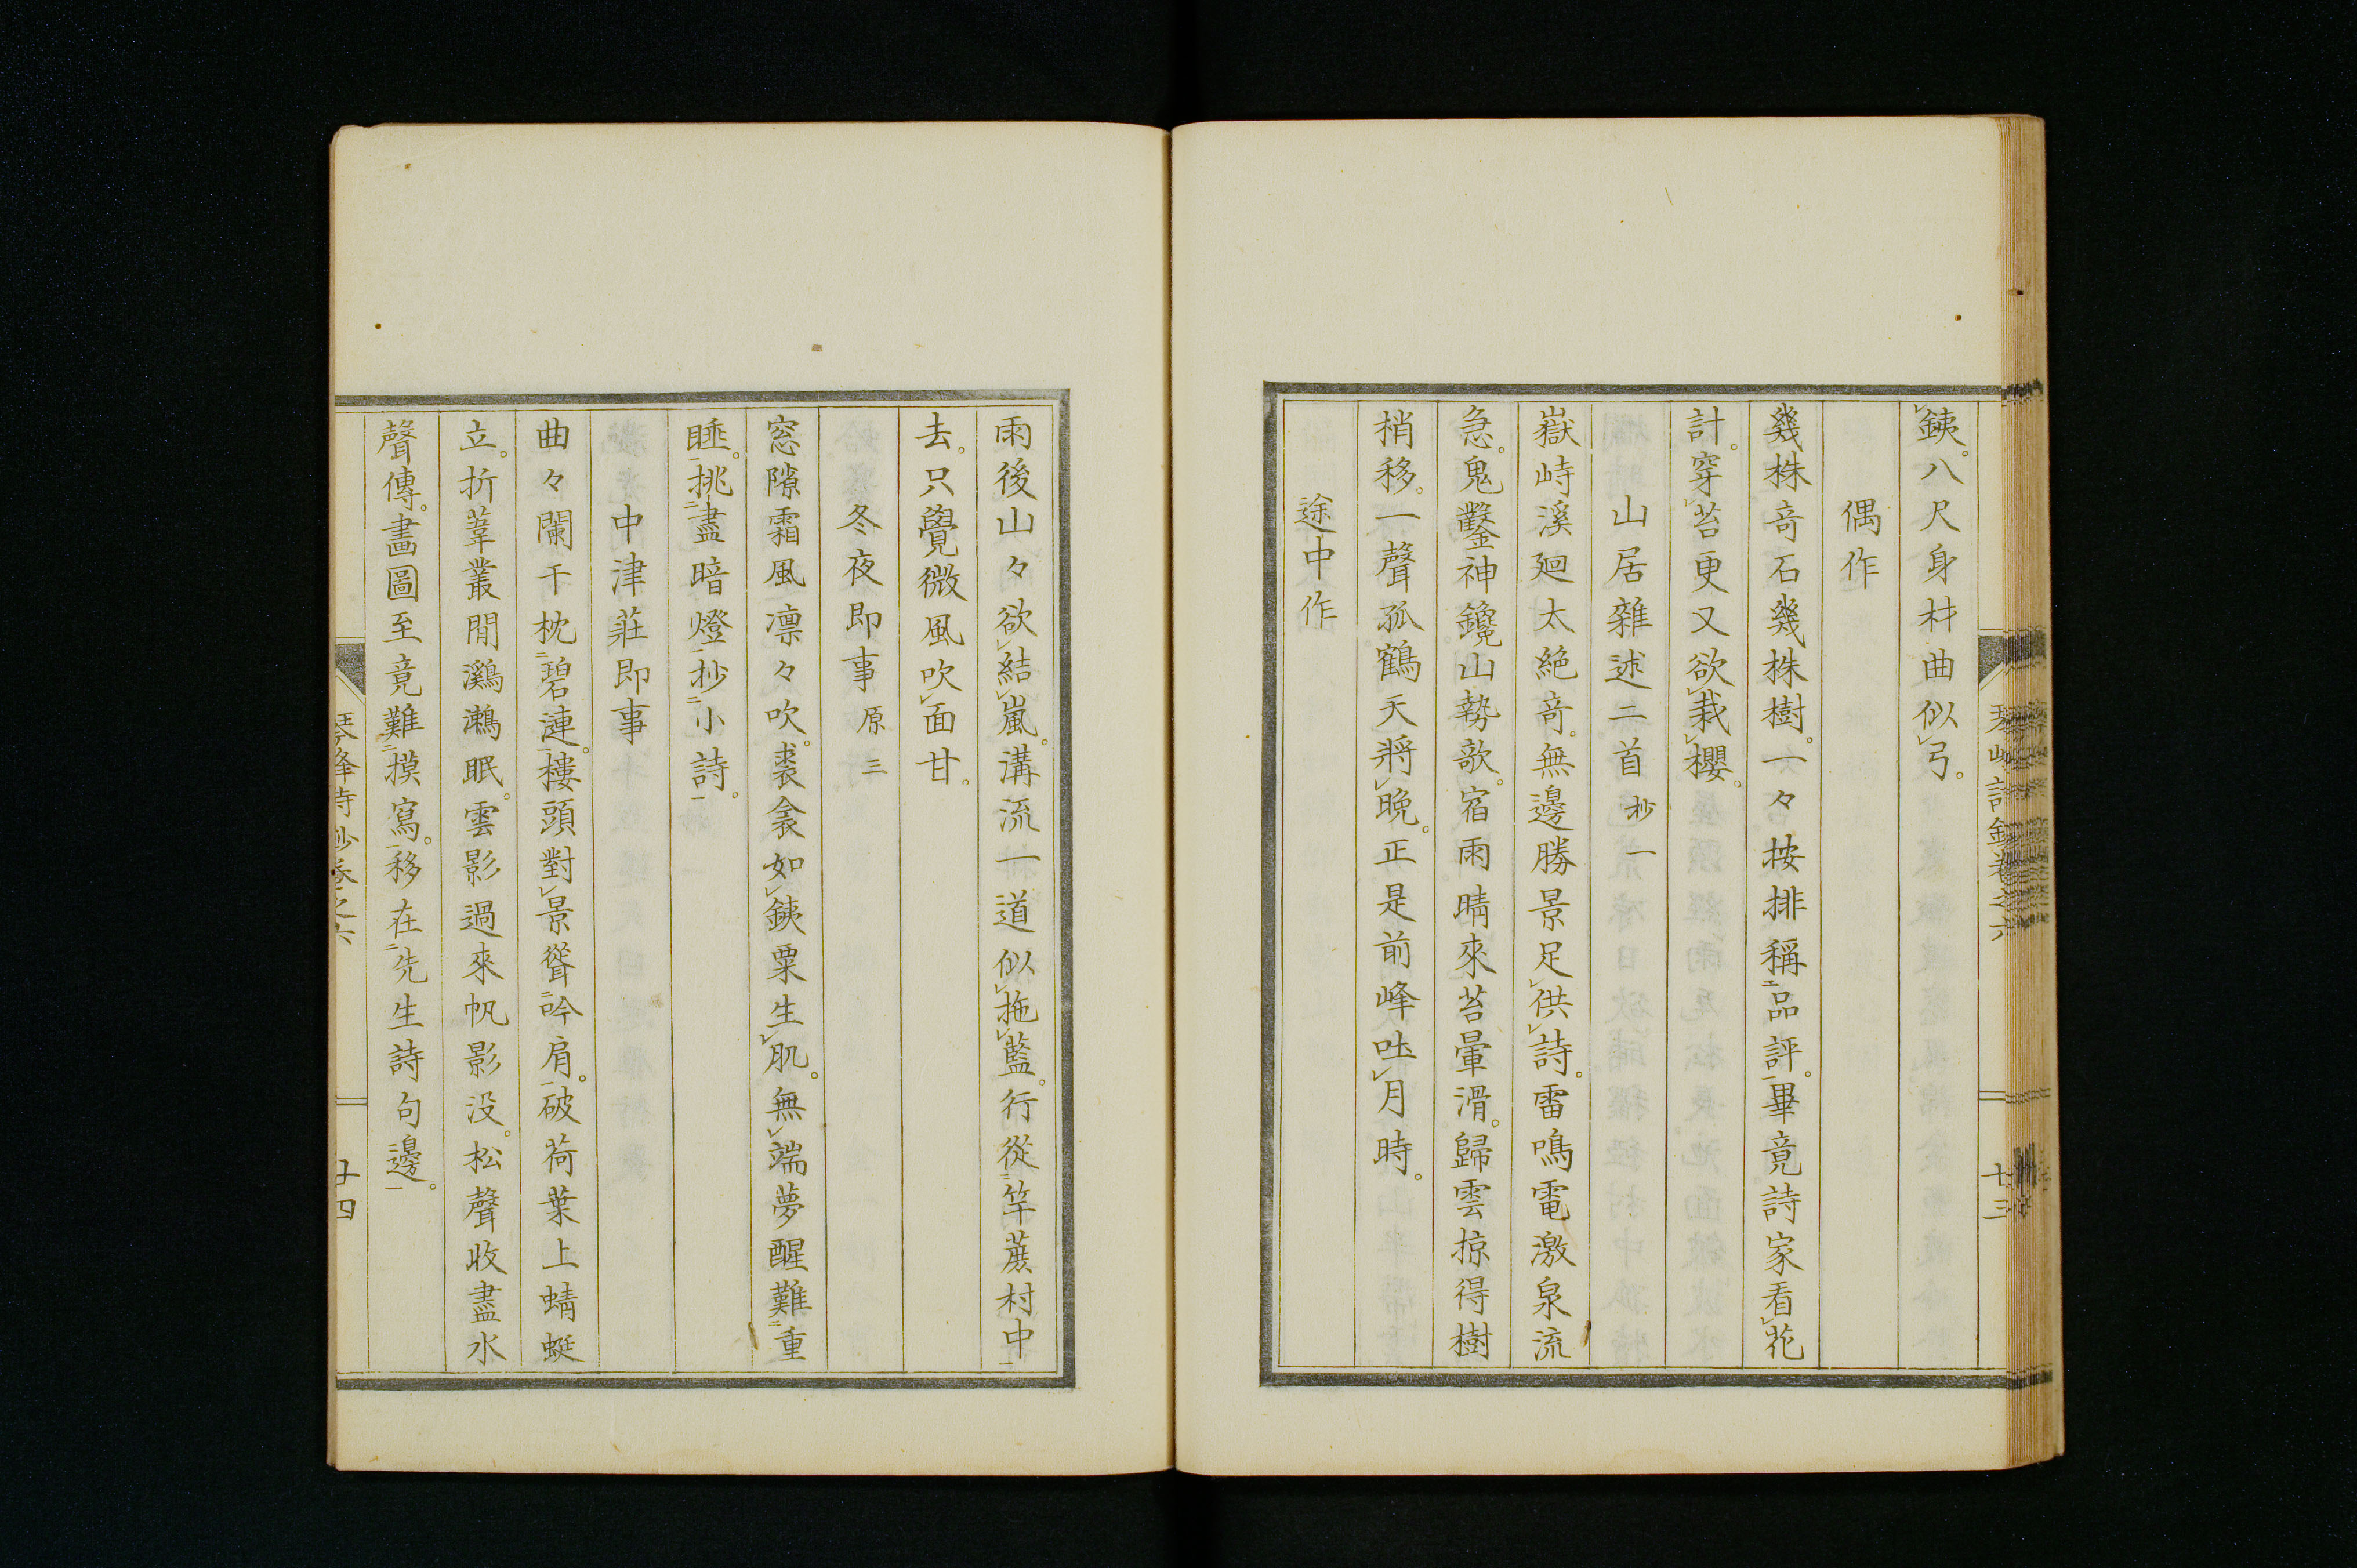 銕。八尺身材曲似弓。
偶作
幾株奇石幾株樹。一々按排稱二品評一。畢竟詩家看花
計。穿苔更又欲栽櫻。
山居雜述二首 抄一
嶽峙溪廻太絶奇。無邊勝景足供詩。雷鳴電激泉流
急。鬼鑿神鑱山勢欹。宿雨晴來苔暈滑。歸雲掠得樹
梢移。一聲孤鶴天將晩。正是前峰吐月時。
途中作
雨後山々欲結嵐。溝流一道似拖藍。行從二竿蔗村中一
去。只覺微風吹面甘。
冬夜即事 原三
窓隙霜風凛々吹。裘衾如銕粟生肌。無端夢醒難二重
睡一。挑二盡暗燈一抄二小詩一。
中津莊即事
曲々闌干枕二碧漣一。樓頭對景聳二吟肩一。破荷葉上蜻蜓
立。折葦叢間鸂鷘眠。雲影過來帆影没。松聲收盡水
聲傳。畵圖至竟難二摸寫一。移在二先生詩句邊一。
琴峰詩鈔卷之六
廿四